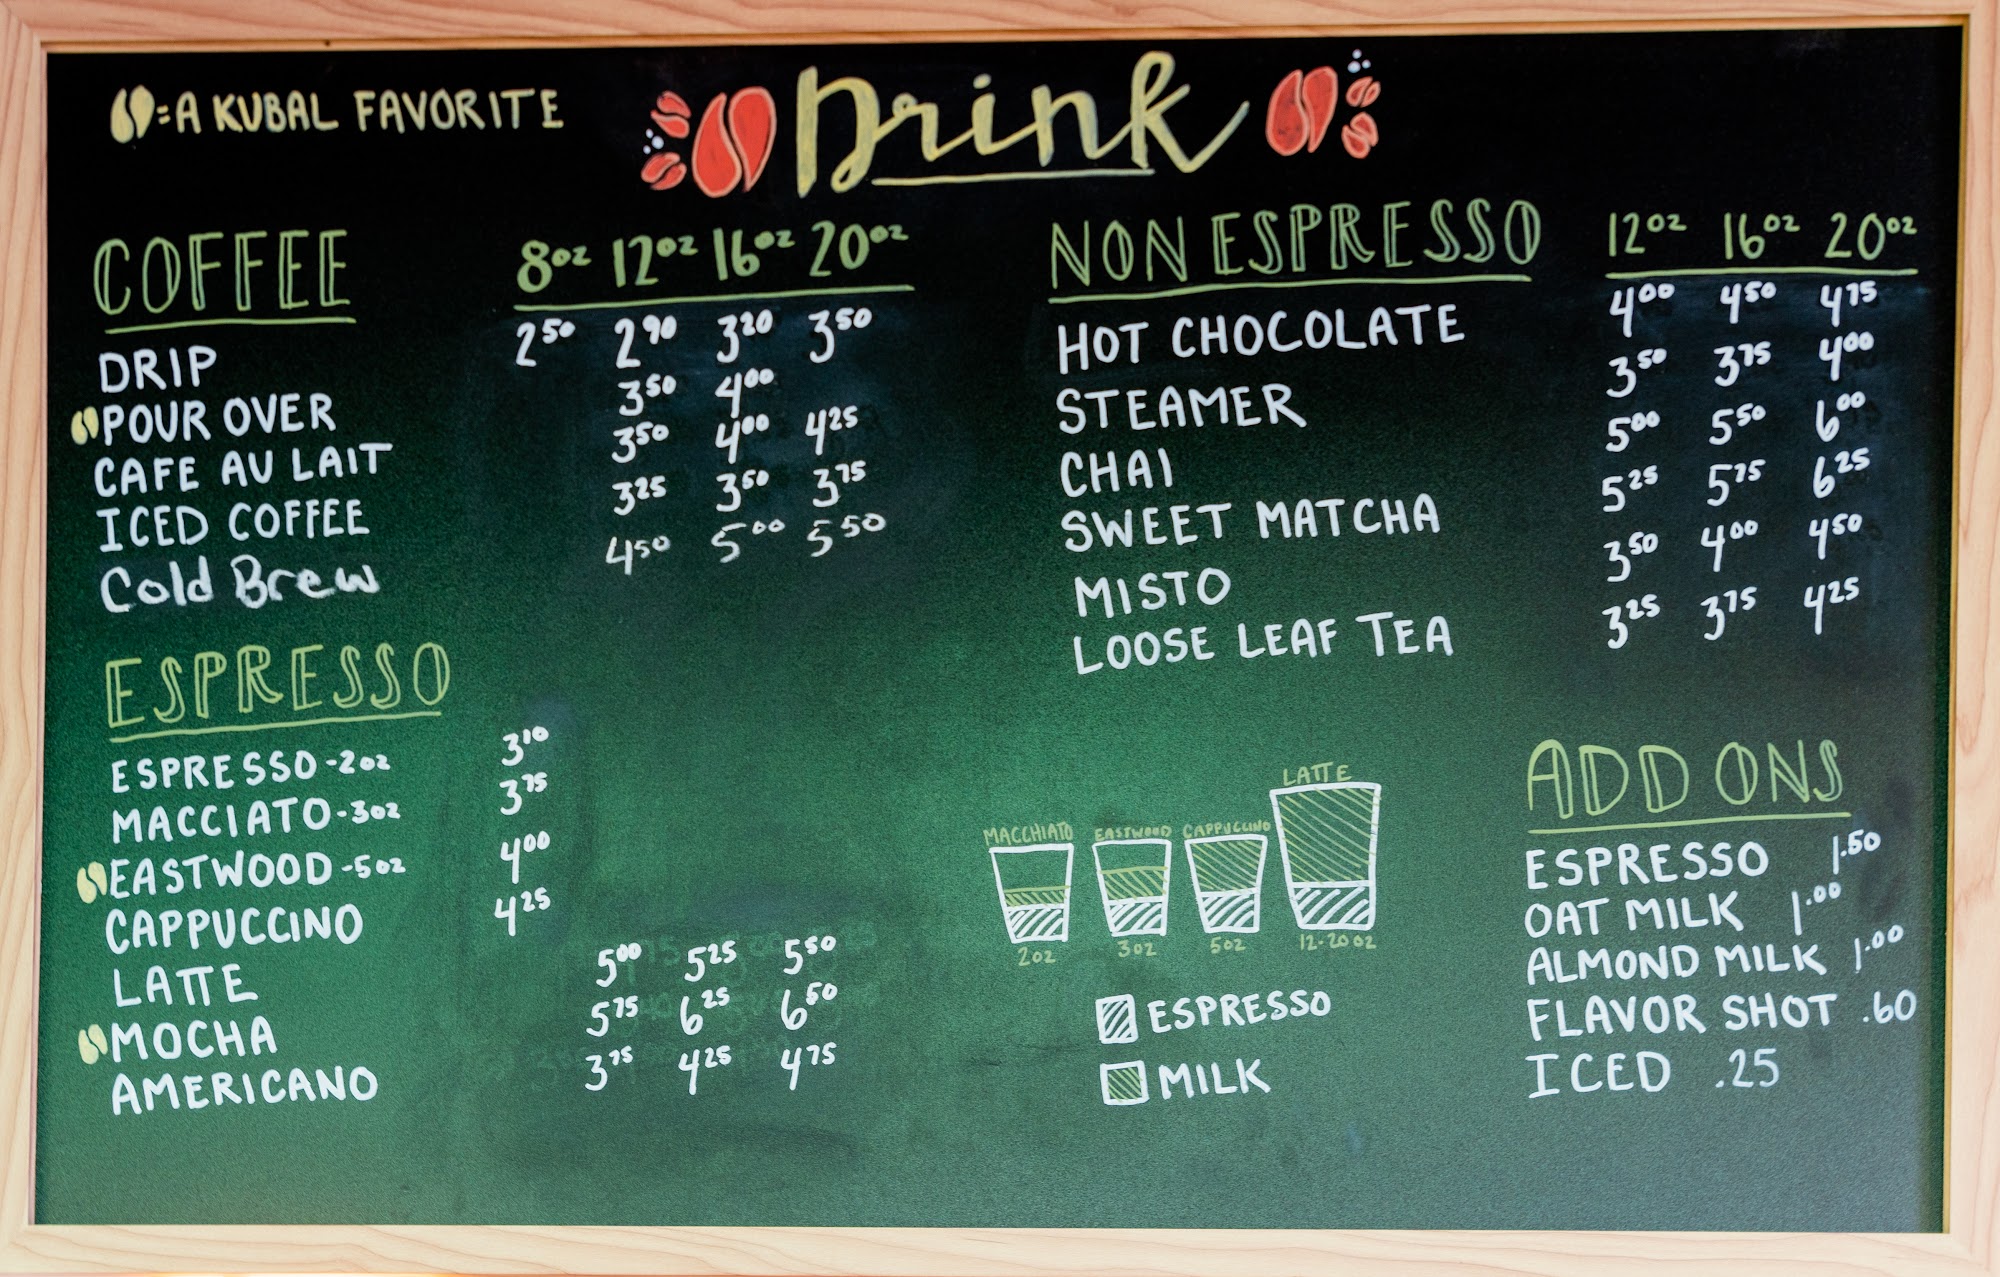 =A KUBAL FAVORITE
Drink
COFFEE 8oz 12oz 16oz 20oz
DRIP 2 50 2 90 3 20 3 50
POUR OVER 3 50 4 00
CAFE AU LAIT 3 50 4 00 4 25
ICED COFFEE 3 25 3 50 3 75
Cold Brew 4 50 5 00 5 50
ESPRESSO
ESPRESSO-2oz 3 10
MACCIATO-3oz 3 75
EASTWOOD-5oz 4 00
CAPPUCCINO 4 25
LATTE 5 00 5 25 5 50
MOCHA 5 75 6 25 6 50
AMERICANO 3 75 4 25 4 75
NON ESPRESSO 12oz 16oz 20oz
HOT CHOCOLATE 4 00 4 50 4 75
STEAMER 3 50 3 75 4 00
CHAI 5 00 5 50 6 00
SWEET MATCHA 5 25 5 75 6 25
MISTO 3 50 4 00 4 50
LOOSE LEAF TEA 3 25 3 75 4 25
MACCHIATO EASTWOOD CAPPUCCINO LATTE
2oz 3oz 5oz 12-20oz
ESPRESSO
MILK
ADD ONS
ESPRESSO 1.50
OAT MILK 1.00
ALMOND MILK 1.00
FLAVOR SHOT .60
ICED .25